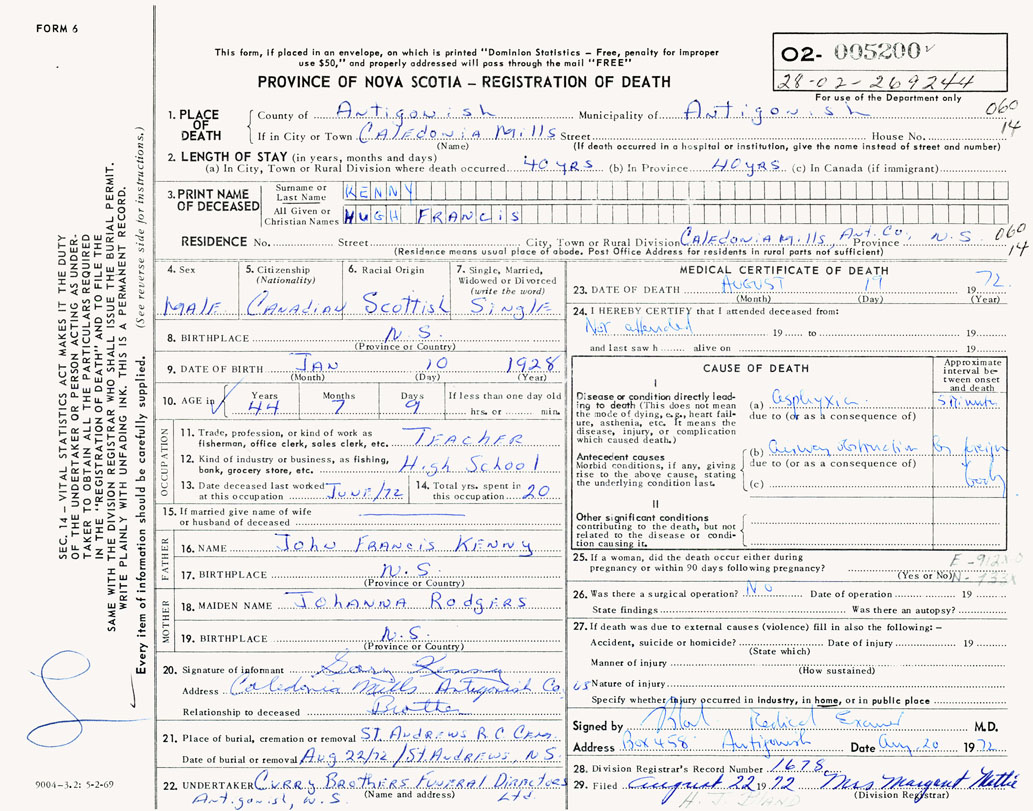 FORM 6
This form, if placed in an envelope, on which is printed "Dominion Statistics – Free, penalty for improper
use $50," and properly addressed will pass through the mail "FREE"
PROVINCE OF NOVA SCOTIA – REGISTRATION OF DEATH
02- 005200
28-02-269244
For use of the Department only
1. PLACE OF DEATH
County of Antigonish Municipality of Antigonish 060
If in City or Town Caledonia Mills Street House No. 14
(Name) (If death occurred in a hospital or institution, give the name instead of street and number)
2. LENGTH OF STAY (in years, months and days)
(a) In City, Town or Rural Division where death occurred 40 yrs (b) In Province 40 yrs (c) In Canada (if immigrant)
3. PRINT NAME OF DECEASED
Surname or Last Name KENNY
All Given or Christian Names HUGH FRANCIS
RESIDENCE No. Street City, Town or Rural Division Caledonia Mills, Ant. Co. Province N.S. 060
(Residence means usual place of abode. Post Office Address for residents in rural parts not sufficient) 14
4. Sex
Male
5. Citizenship
(Nationality)
Canadian
6. Racial Origin
Scottish
7. Single, Married,
Widowed or Divorced
(write the word)
Single
8. BIRTHPLACE N.S.
(Province or Country)
9. DATE OF BIRTH Jan 10 1928
(Month) (Day) (Year)
10. AGE in
Years Months Days If less than one day old
44 7 9 hrs. or min.
OCCUPATION
11. Trade, profession, or kind of work as
fisherman, office clerk, sales clerk, etc. Teacher
12. Kind of industry or business, as fishing,
bank, grocery store, etc. High School
13. Date deceased last worked
at this occupation June/72
14. Total yrs. spent in
this occupation 20
15. If married give name of wife
or husband of deceased
FATHER
16. NAME John Francis Kenny
17. BIRTHPLACE N.S.
(Province or Country)
MOTHER
18. MAIDEN NAME Johanna Rodgers
19. BIRTHPLACE N.S.
(Province or Country)
20. Signature of informant Gary Kenny
Address Caledonia Mills Antigonish Co.
Relationship to deceased Brother
21. Place of burial, cremation or removal St. Andrews R.C. Cem.
Date of burial or removal Aug 22/72 / St. Andrews, N.S.
22. UNDERTAKER Curry Brothers Funeral Directors
Antigonish, N.S. (Name and address) Ltd.
MEDICAL CERTIFICATE OF DEATH
23. DATE OF DEATH August 19 1972
(Month) (Day) (Year)
24. I HEREBY CERTIFY that I attended deceased from:
Not attended 19 to 19
and last saw h alive on 19
CAUSE OF DEATH
Approximate
interval be-
tween onset
and death
I
Disease or condition directly lead-
ing to death (This does not mean
the mode of dying, e.g., heart fail-
ure, asthenia, etc. It means the
disease, injury, or complication
which caused death.)
(a) Asphyxia 5 minutes
due to (or as a consequence of)
Antecedent causes
Morbid conditions, if any, giving
rise to the above cause, stating
the underlying condition last.
(b) Airway obstruction by foreign
due to (or as a consequence of)
body
(c)
II
Other significant conditions
contributing to the death, but not
related to the disease or condi-
tion causing it.
25. If a woman, did the death occur either during
pregnancy or within 90 days following pregnancy?
(Yes or No)
26. Was there a surgical operation? No Date of operation 19
State findings Was there an autopsy?
27. If death was due to external causes (violence) fill in also the following: –
Accident, suicide or homicide? Date of injury 19
(State which)
Manner of injury
(How sustained)
Nature of injury
Specify whether injury occurred in industry, in home, or in public place
Signed by Medical Examiner M.D.
Address Box 458 Antigonish Date Aug. 20 1972
28. Division Registrar's Record Number 1678
29. Filed August 22 1972 Mrs Margaret
(Division Registrar)
SEC. 14 – VITAL STATISTICS ACT MAKES IT THE DUTY
OF THE UNDERTAKER OR PERSON ACTING AS UNDER-
TAKER TO OBTAIN ALL THE PARTICULARS REQUIRED
IN THE "REGISTRATION OF DEATH" AND TO FILE THE
SAME WITH THE DIVISION REGISTRAR WHO SHALL ISSUE THE BURIAL PERMIT.
WRITE PLAINLY WITH UNFADING INK. THIS IS A PERMANENT RECORD.
Every item of information should be carefully supplied. (See reverse side for instructions.)
9004-3.2: 5-2-69